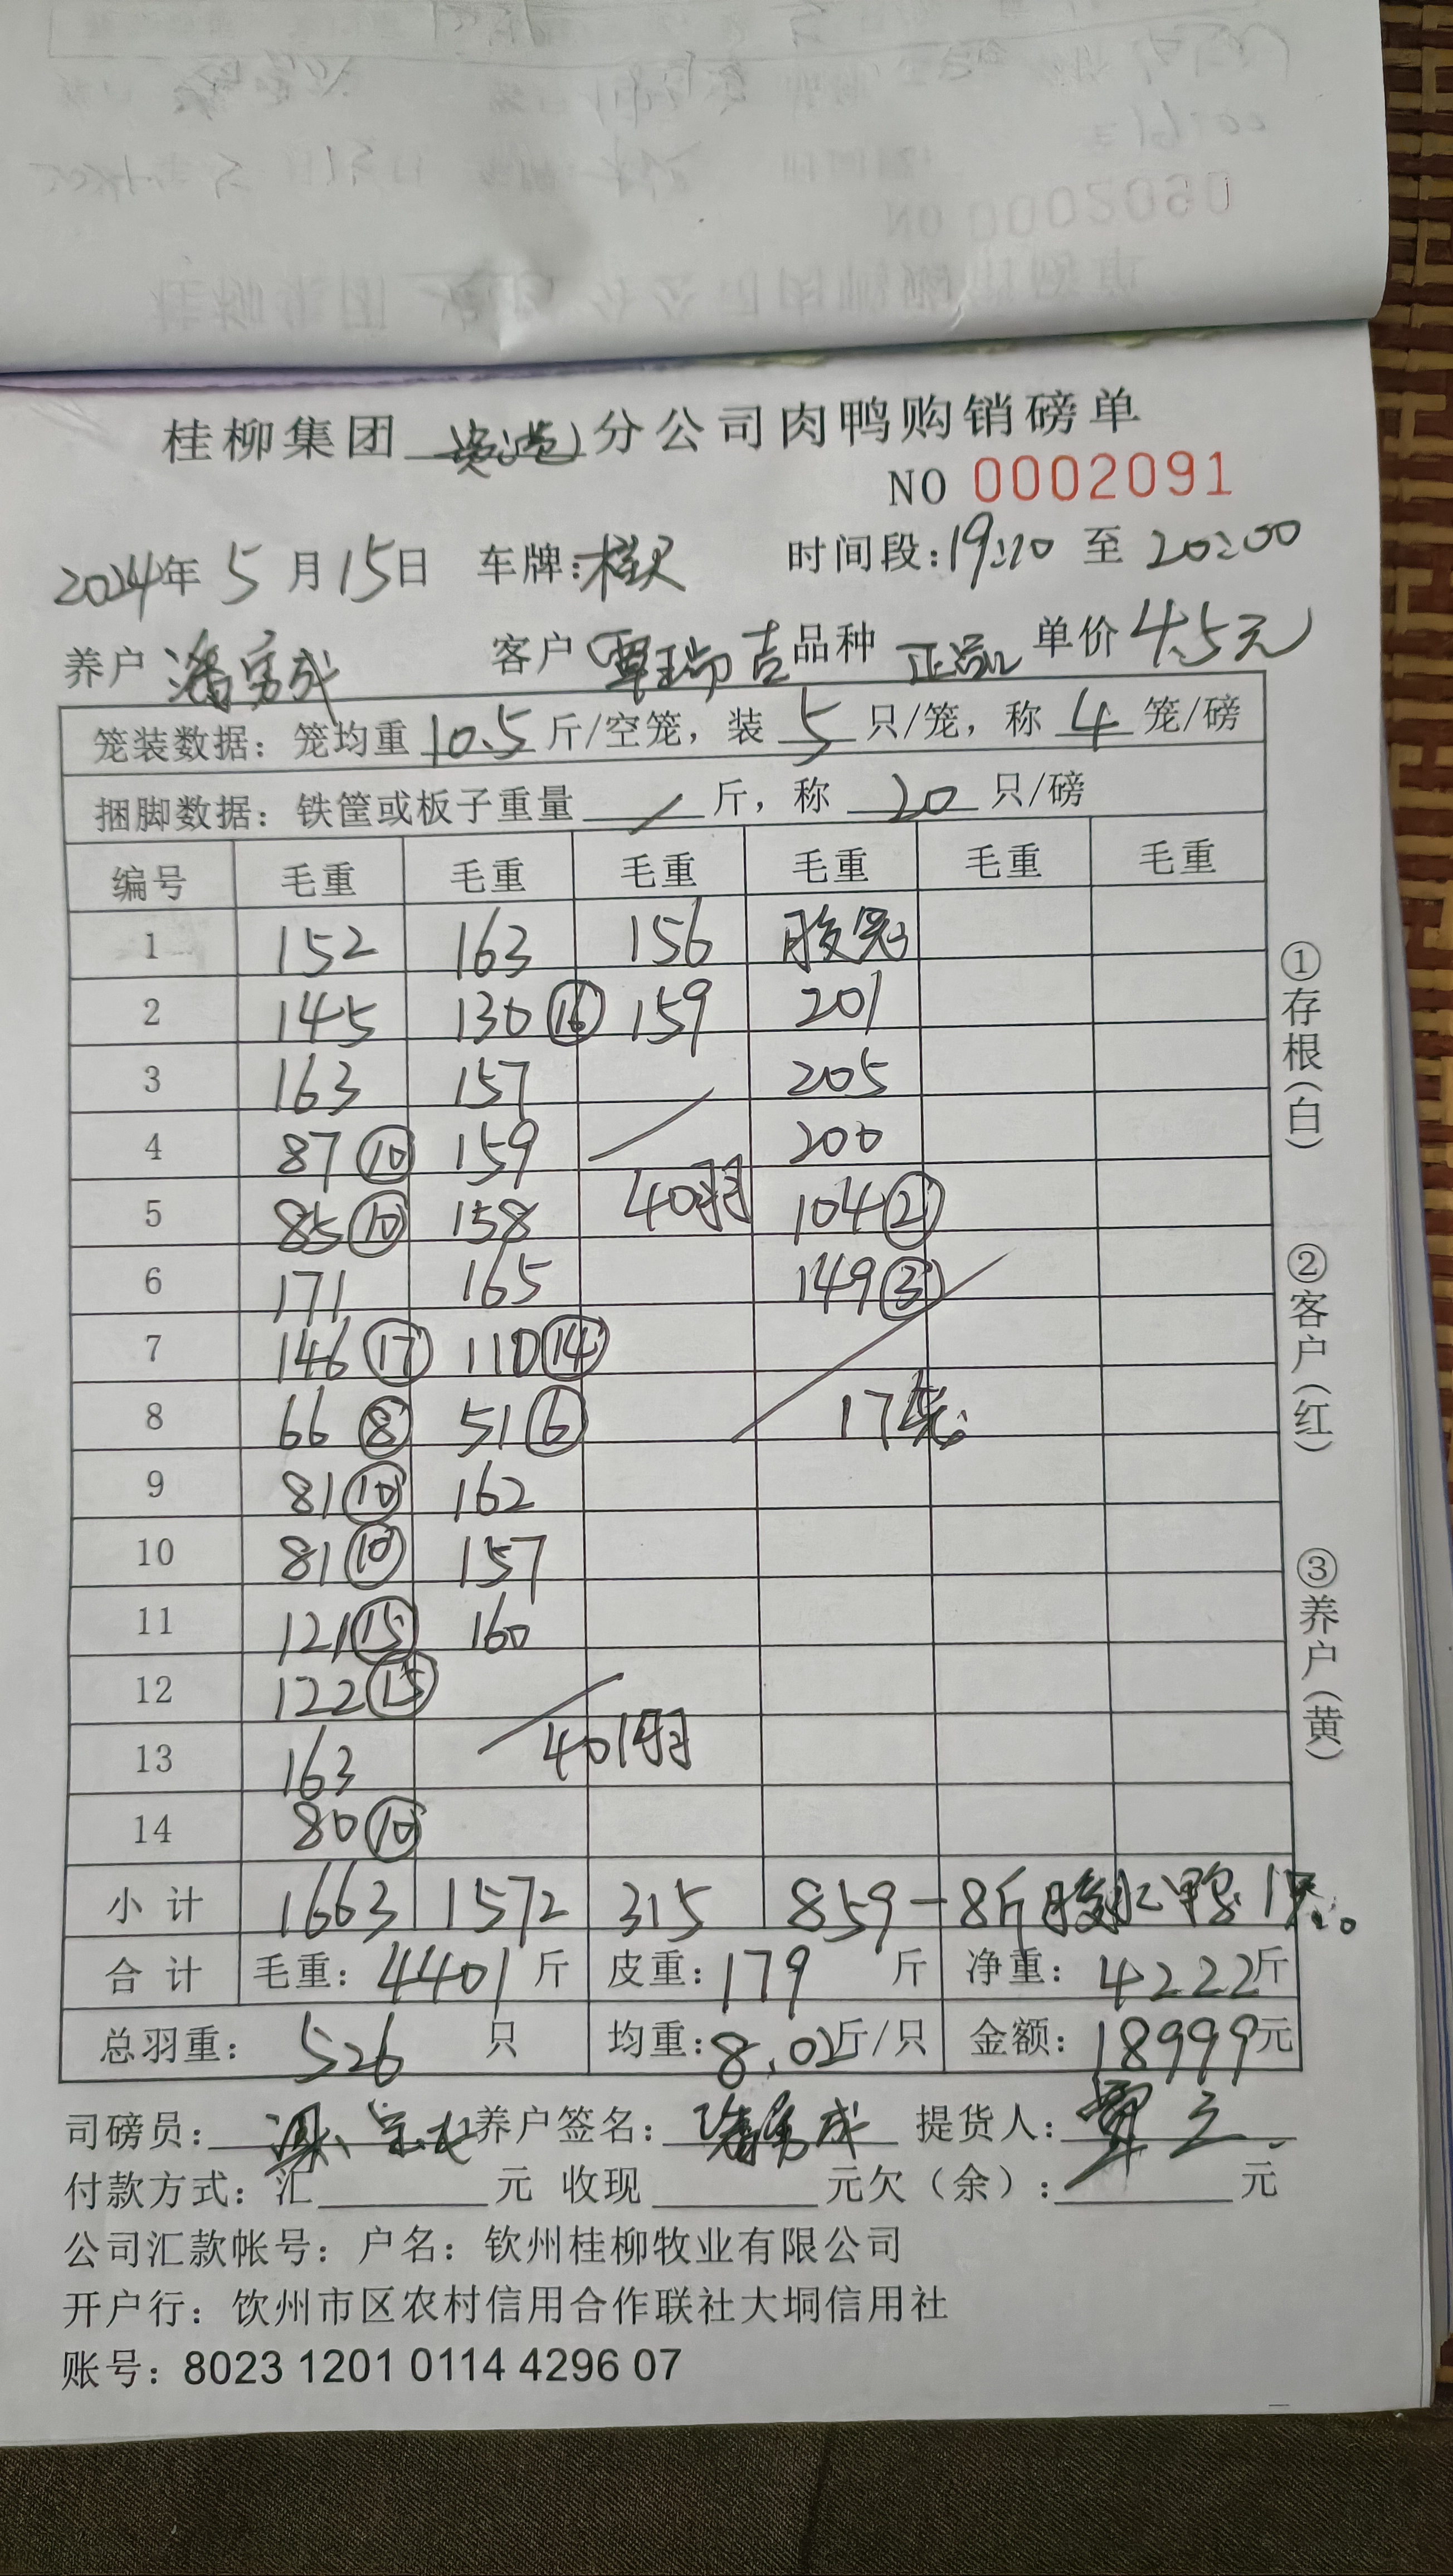 NO 0002090
桂柳集团 贵港 分公司肉鸭购销磅单
NO 0002091
2024年 5 月 15日 车牌: 时间段:19:10 至 20:00
养户 潘家成 客户 覃瑞吉 品种 正品 单价 4.5元
笼装数据: 笼均重 10.5 斤/空笼, 装 5 只/笼, 称 4 笼/磅
捆脚数据: 铁筐或板子重量 / 斤, 称 20 只/磅
编号 毛重 毛重 毛重 毛重 毛重 毛重
1 152 163 156 胶笼
2 145 130 ⑯ 159 201
3 163 157 205
4 87 ⑩ 159 200
5 85 ⑩ 158 40羽 104 ②
6 171 165 149 ③
7 146 ⑰ 110 ⑭
8 66 ⑧ 51 ⑥ 17笼
9 81 ⑩ 162
10 81 ⑩ 157
11 121 ⑮ 160
12 122 ⑮
13 163 401羽
14 80 ⑩
小计 1663 1572 315 859-8斤
合计 毛重: 4401 斤 皮重: 179 斤 净重: 4222斤
总羽重: 526 只 均重: 8.02斤/只 金额: 18999元
司磅员: 养户签名: 潘家成 提货人: 覃
付款方式: 汇 元 收现 元欠(余): 元
公司汇款帐号: 户名: 钦州桂柳牧业有限公司
开户行: 饮州市区农村信用合作联社大垌信用社
账号: 8023 1201 0114 4296 07
①存根(白)
②客户(红)
③养户(黄)